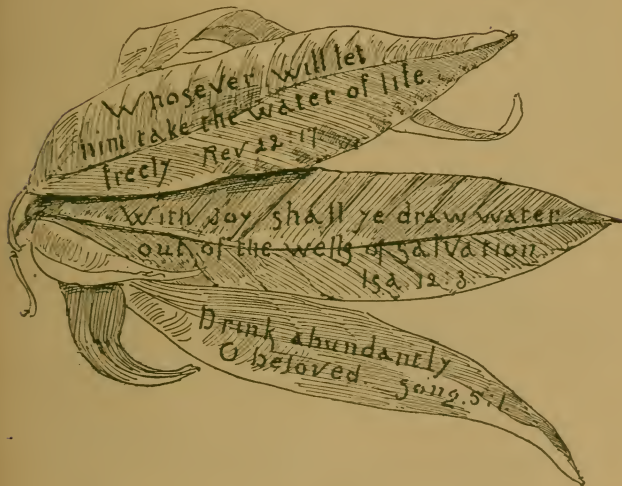 Whosever will let
him take the water of life
freely Rev 22:17
With Joy shall ye draw water
out of the wells of salvation
Isa 12:3
Drink abundantly
O beloved. Song. 5:1.